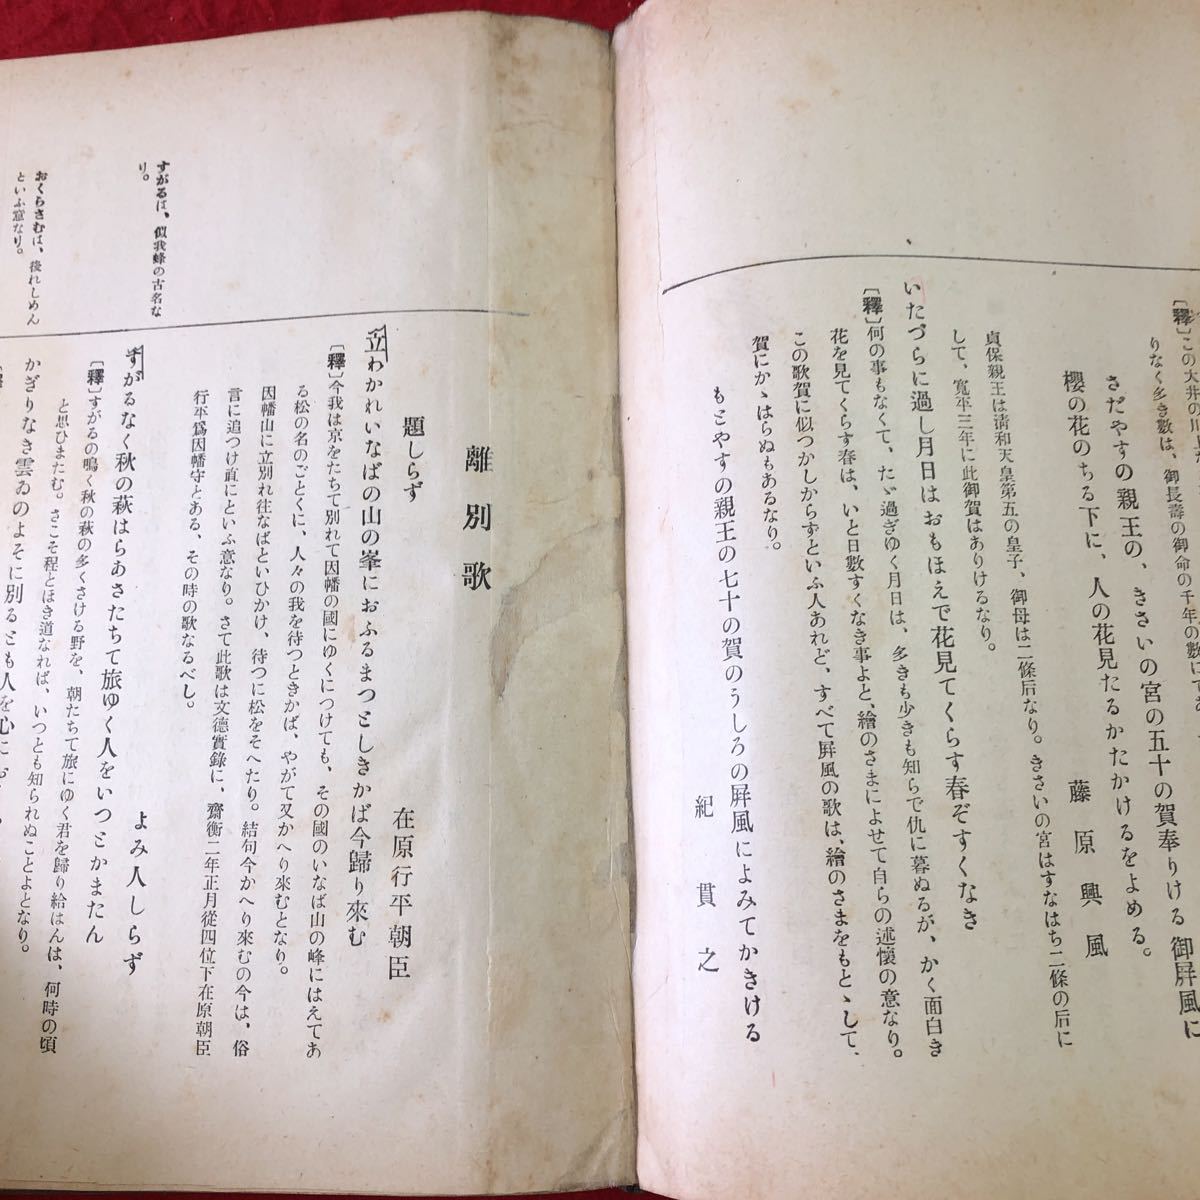 〔釋〕この大井の川
りなく多き數は、御長壽の御命の千年の數にて
さだやすの親王の、きさいの宮の五十の賀奉りける 御屛風に
櫻の花のちる下に、人の花見たるかたかけるをよめる。
藤原興風
貞保親王は淸和天皇第五の皇子、御母は二條后なり。きさいの宮はすなはち二條の后に
して、寬平三年に此御賀はありけるなり。
いたづらに過し月日はおもほえで花見てくらす春ぞすくなき
〔釋〕何の事もなくて、たゞ過ぎゆく月日は、多きも少きも知らで仇に暮ぬるが、かく面白き
花を見てくらす春は、いと日數すくなき事よと、繪のさまによせて自らの述懷の意なり。
この歌賀に似つかしからずといふ人あれど、すべて屛風の歌は、繪のさまをもとゝして、
賀にかゝはらぬもあるなり。
もとやすの親王の七十の賀のうしろの屛風によみてかきける
紀貫之
離別歌
題しらず
在原行平朝臣
立わかれいなばの山の峯におふるまつとしきかば今歸り來む
〔釋〕今我は京をたちて別れて因幡の國にゆくにつけても、その國のいなば山の峰にはえてあ
る松の名のごとくに、人々の我を待つときかば、やがて又かへり來むとなり。
因幡山に立別れ往なばといひかけ、待つに松をそへたり。結句今かへり來むの今は、俗
言に追つけ直にといふ意なり。さて此歌は文德實錄に、齋衡二年正月從四位下在原朝臣
行平爲因幡守とある、その時の歌なるべし。
すがるは、似我蜂の古名な
り。
よみ人しらず
すがるなく秋の萩はらあさたちて旅ゆく人をいつとかまたん
〔釋〕すがるの鳴く秋の萩の多くさける野を、朝たちて旅にゆく君を歸り給はんは、何時の頃
と思ひまたむ。さこそ程とほき道なれば、いつとも知られぬことよとなり。
おくらさむは、後れしめん
といふ意なり。
かぎりなき雲ゐのよそに別るとも人を心にお